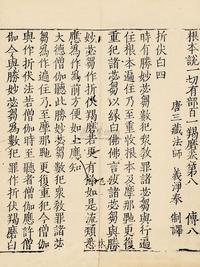 根本說一切有部百一羯磨卷第八　傳八
唐三藏法師　義淨奉　制譯
折伏白四
時有勝妙苾芻數犯眾教罪諸苾芻與行遍
住根本遍住乃至重收根本及摩那卑更復
重犯諸苾芻以緣白佛佛言汝諸苾芻與勝
妙苾芻作折伏羯磨若更有餘如是流類悉
應為作為前方便如上應知
大德僧伽聽此勝妙苾芻數犯眾教罪諸苾
芻為作遍住乃至摩那卑更復重犯今僧伽
與作折伏法若僧伽時至聽者僧伽應許僧
伽今與勝妙苾芻為數犯罪作折伏羯磨白